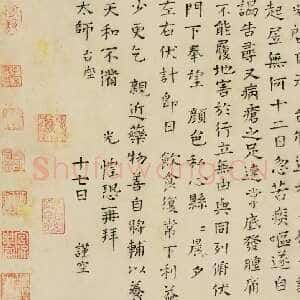 起居無何十二日忽苦痰嗽遂自
謁告尋又病瘡足掌底發腫痛
不能履地害於行立無由與同列俯伏
門下奉望 顏色私懸晨夕
左右伏計即日 飲復常下利益
少更乞 親近藥物善自將輔以養
天和不備 光惶恐再拜
太師 台座
十七日 謹空
Shufawang.cn